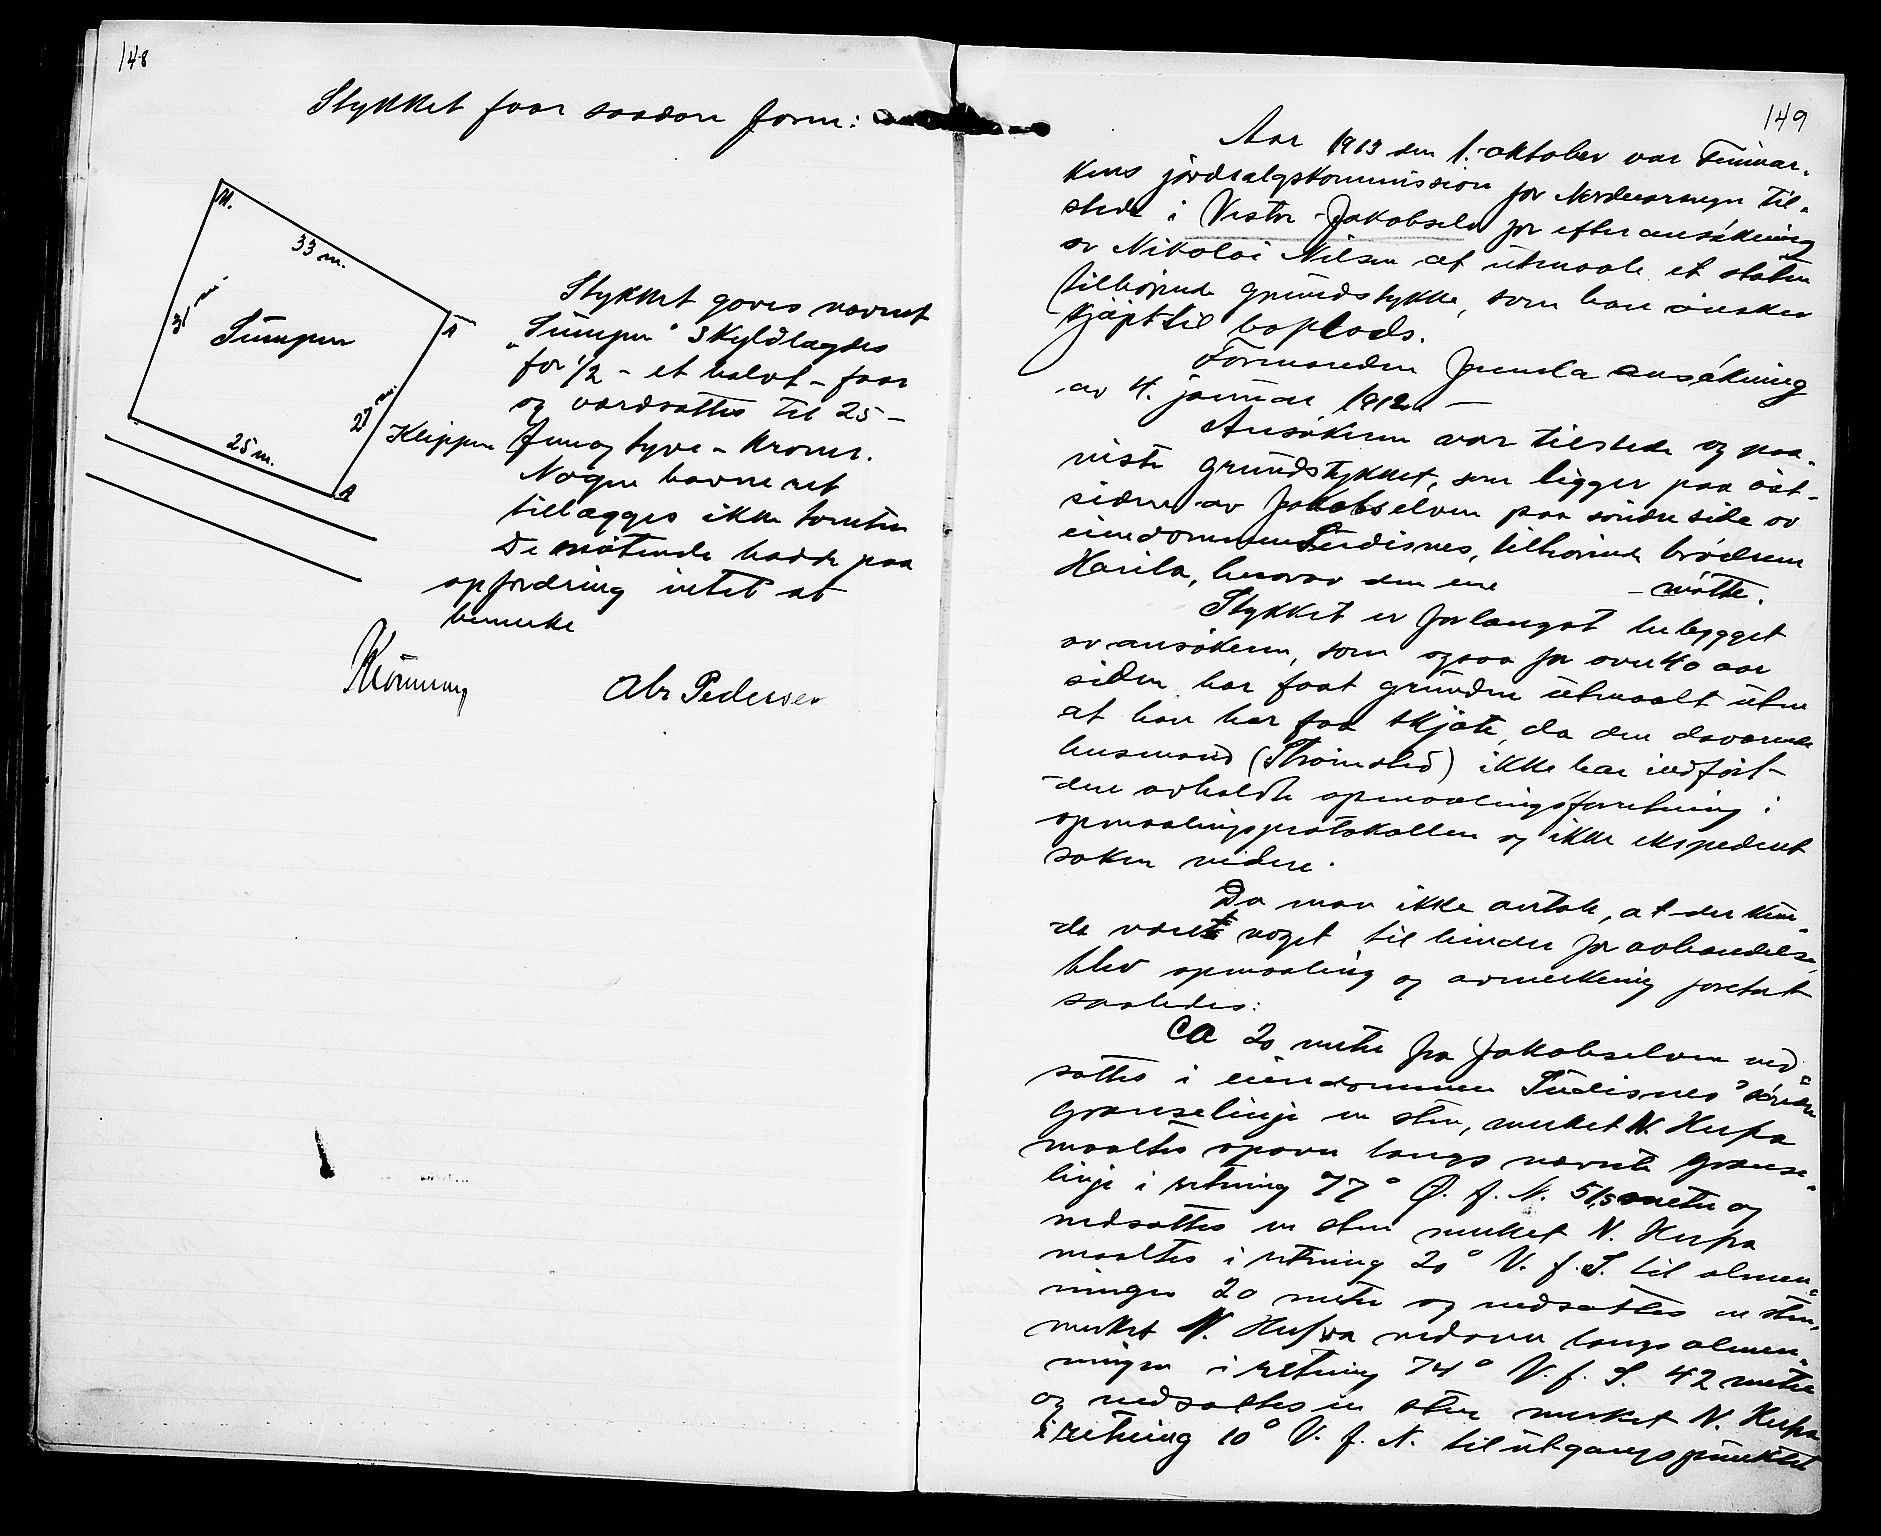 148
Stykket faar saadan form:
M.
33 m.
31 m.
Sumpen
A
27 m.
25 m.
A
Klippen
Stykket gaves navnet
"Sumpen" skyldlagdes
for 1/2 - et halvt - føar
og værdsattes til 25 -
fem og tyve - kroner.
Nogen havneret
tillægges ikke tomten
De møtende hadde paa
opfordring intet at
bemerke
Abr Pedersen
149
Aar 1913 den 1. oktober var Finmar-
kens jordsalgskommission for Nordvaranger til-
stede i Vestre-Jakobselv for efter ansøkning
av Nikolai Nilsen at utmaale et staten
tilhørende grundstykke, som han ønsker
kjøpt til boplads.
Formanden fremla ansøkning
av 4. januar 1912. -
Ansøkeren var tilstede og paa-
viste grundstykket, som ligger paa øst-
siden av Jakobselven paa søndre side av
eiendommen Tudisnes, tilhørende brødrene
Harila, hvorav den ene - møtte.
Stykket er forlængst bebygget
av ansøkeren, som ogsaa for over 40 aar
siden har faat grunden utmaalt uten
at han har faat skjøte, da den daværende
lensmand (Strømsted) ikke har indført
den avholdte opmaalingsforretning i
opmaalingsprotokollen og ikke ekspedert
saken videre.
Da man ikke antok, at der kun-
de være noget til hinder for avhændelse,
blev opmaaling og avmerkning foretat
saaledes:
Ca 20 meter fra Jakobselven ned-
sattes i eiendommen "Tudisnes" søndre
grænselinje en sten, merket N. Herfra
maaltes opover langs nævnte grænse-
linje i retning 77° Ø. f. N. 51,5 meter og
nedsattes en sten merket N. Herfra
maaltes i retning 20° V. f. S. til almen-
ningen 20 meter og nedsattes en sten,
merket N. Herfra nedover langs almen-
ningen i retning 74° V. f. S. 42 meter
og nedsattes en sten merket N. Herfra
i retning 10° V. f. N. til utgangspunktet